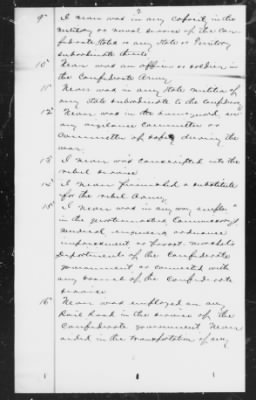 2
9" I never was in any capacity in the
military or naval service of the Con-
federate States or any State or Territory
subordinate thereto
10" Never was an officer or soldier in
the Confederate Army
11" Never was in any State militia of
any State subordinate to the Confederacy
12" Never was in the home guard, nor
any vigilance Committee or
Committee of safety during the
war
13" I never was conscripted into the
rebel service
14" I never furnished a substitute
for the rebel Army
15" I never was in any way
in the quartermaster, Commissary,
medical, engineer, ordnance
impressment or
Departments of the Confederate
government or connected with
any branch of the Confederate
service
16" Never was employed on any
Rail Road in the service of the
Confederate government Never
aided in the transportation of any